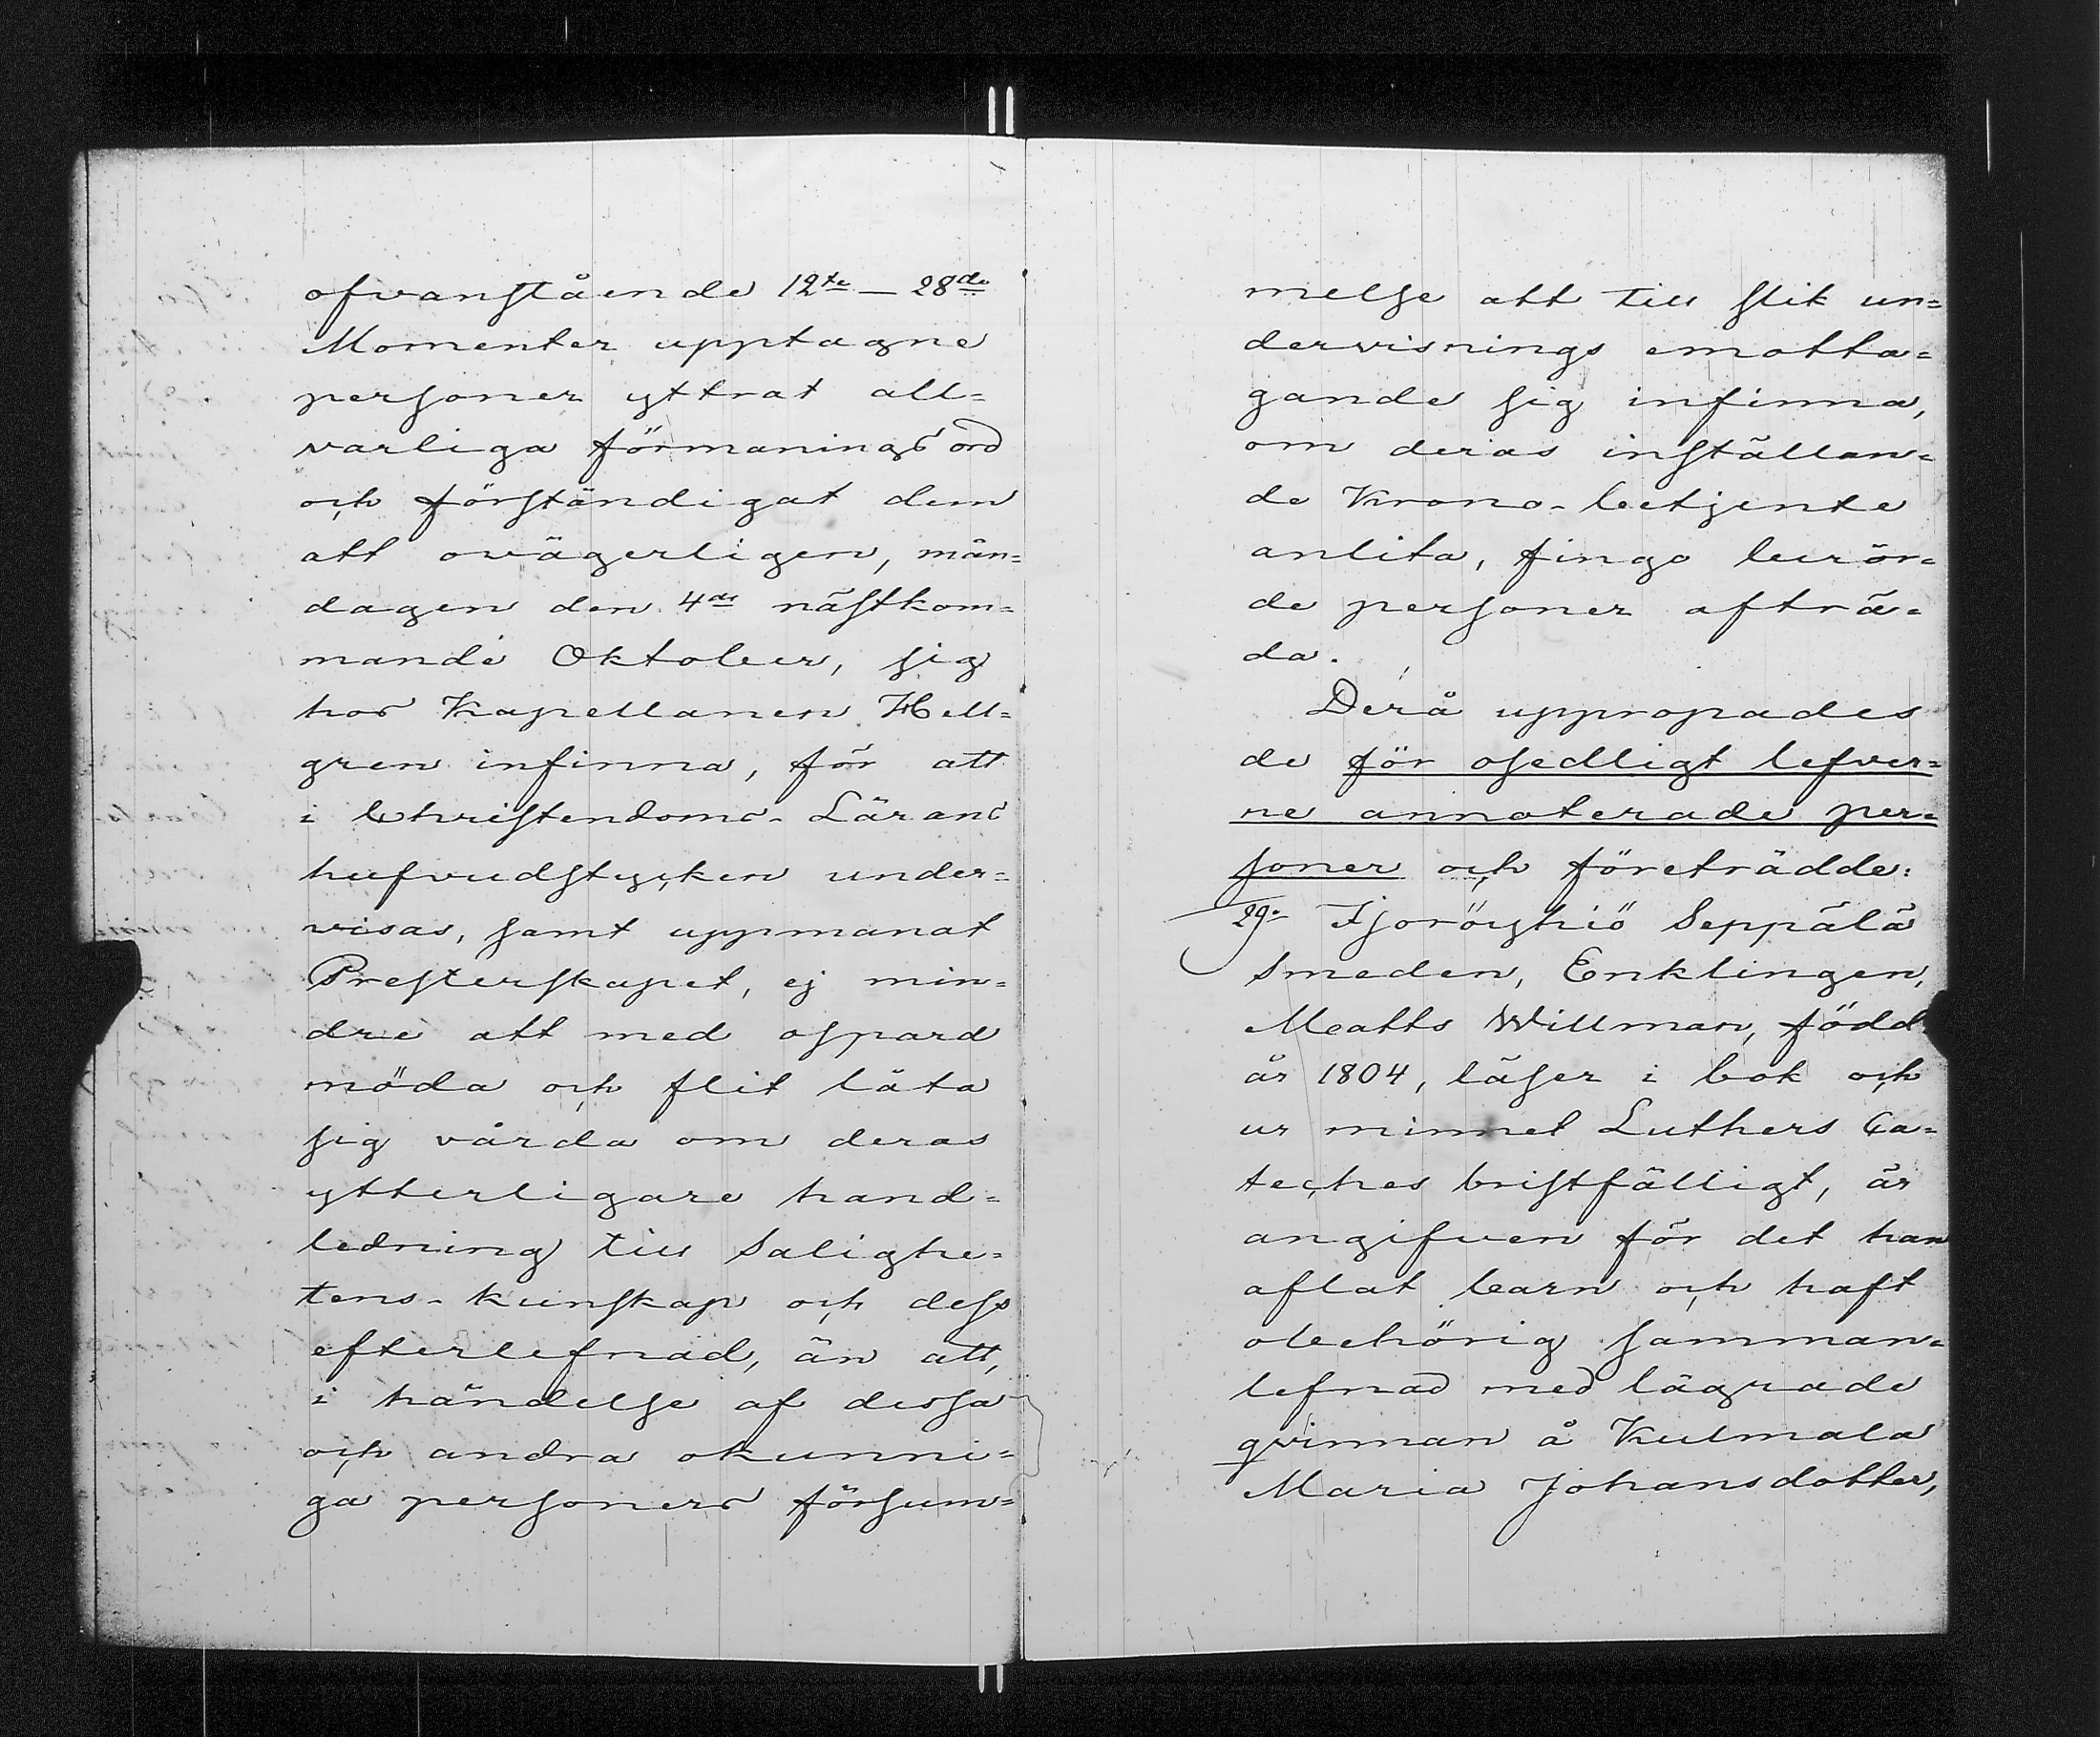 ofvanstående 12te – 28de
Momenter upptagne
personer yttrat all=
varliga förmanings ord
och förständigat dem
att ovägerligen, mån=
dagen den 4de nästkom=
mande Oktober, sig
hos Kapellanen Hell=
gren infinna, för att
i Christendoms-Lärans
hufvudstycken under=
visas, samt uppmanat
Presterskapet, ej min=
dre att med ospard
möda och flit låta
sig vårda om deras
ytterligare hand=
ledning till Salighe=
tens-kunskap och dess
efterlefnad, än att,
i händelse af dessa
och andra okunni=
ga personers försum=
melse att till slik un=
dervisnings emotta=
gande sig infinna,
om deras inställan=
de Krono-betjente
anlita, fingo berör=
de personer afträ=
da.
Derå uppropades
de för osedligt lefver=
ne annoterade per=
soner och företrädde:
29. Tjoröyhiö Seppälä
Smeden, Enklingen,
Matts Willman, född
år 1804, läser i bok och
ur minnet Luthers Ca=
teches bristfälligt, är
angifven för det han
aflat barn och haft
obehörig samman=
lefnad med lägrade
qvinnan å Kulmala
Maria Johansdotter,